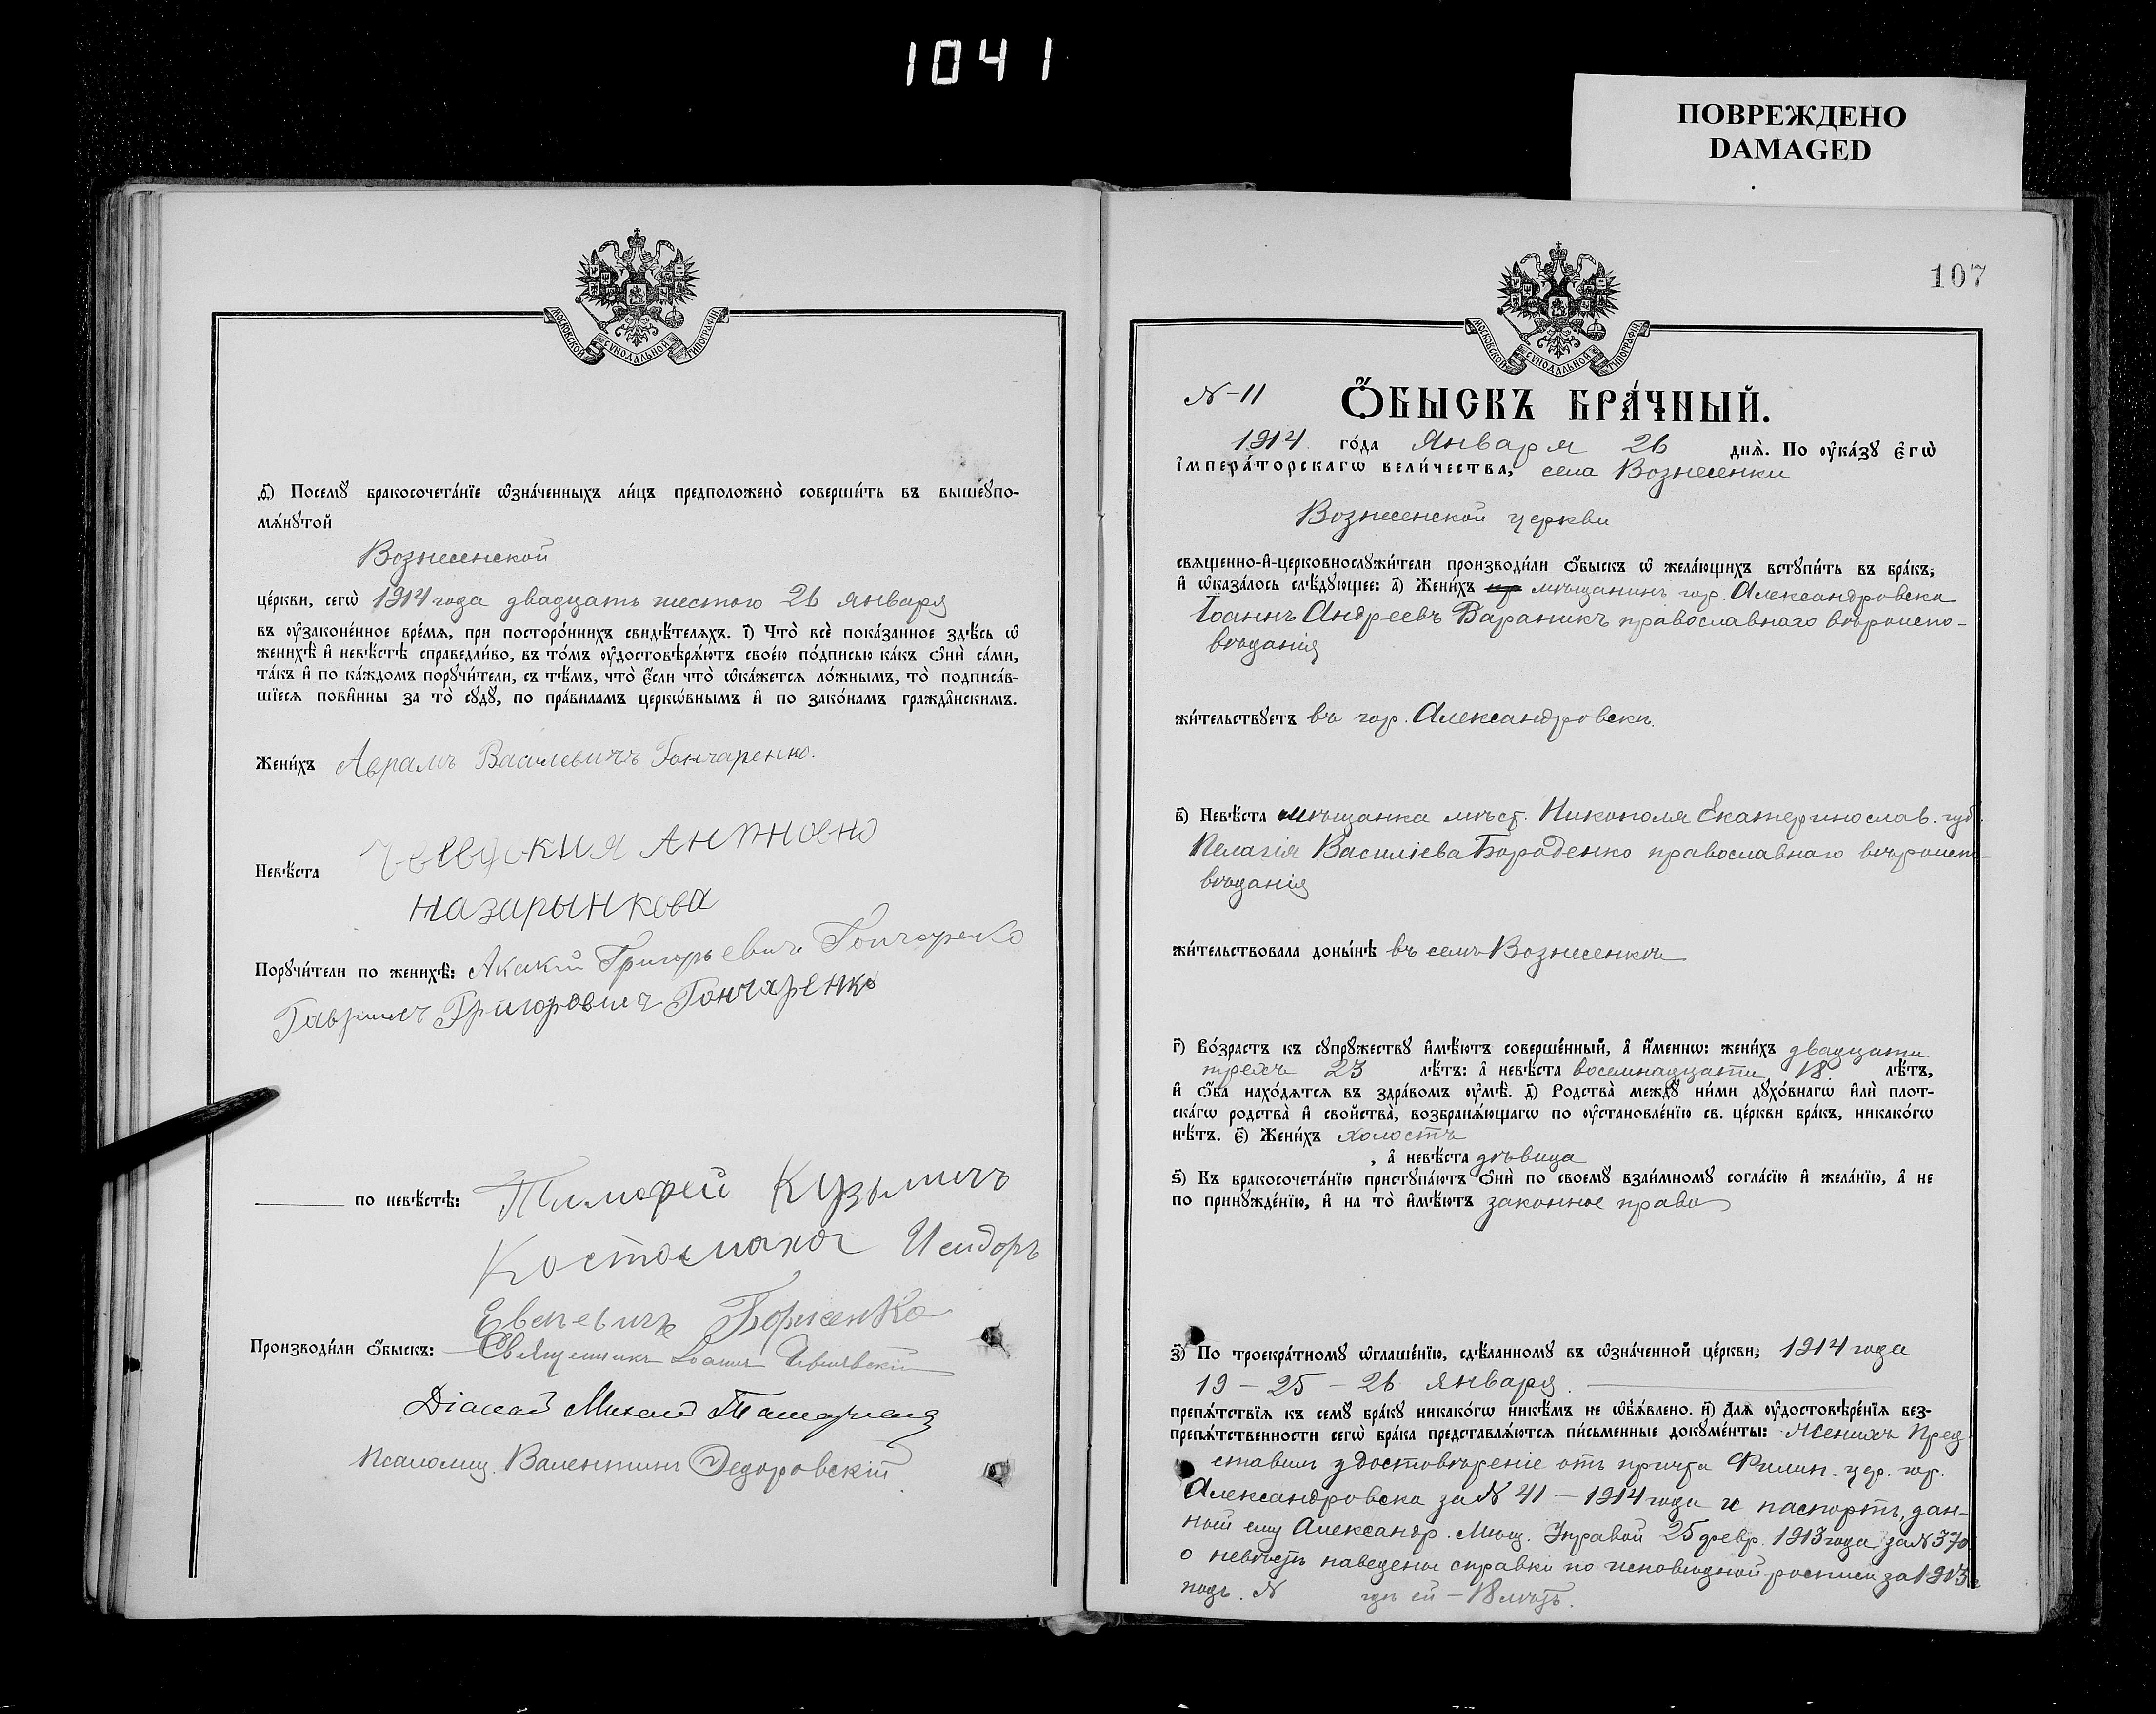 1041
ПОВРЕЖДЕНО
DAMAGED
МОСКОВСКОЙ СѴНОДАЛЬНОЙ ТИПОГРАФІИ
Посемꙋ бракосочета́нїе ѡ҆зна́ченныхъ ли́цъ предположено̀ соверши́ть въ вышеꙋпо-
мѧ́нꙋтой
Вознесенской
це́ркви, сегѡ̀ 1914 года двадцать шестого 26 января
въ ᲂу҆законе́нное вре́мѧ, при посторо́ннихъ свидѣ́телѧхъ. і҃) Что̀ всѐ пока́занное здѣ́сь ѡ҆
женихѣ̀ и҆ невѣ́стѣ справедли́во, въ то́мъ ᲂу҆достовѣрѧ́ютъ свое́ю по́дписью ка́къ ѻ҆нѝ са́ми,
та́къ и҆ по ка́ждомъ порꙋчи́тели, съ тѣ́мъ, что̀ є҆́сли что̀ ѡ҆ка́жетсѧ ло́жнымъ, то̀ подписа́в-
шїесѧ пови́нны за то̀ сꙋдꙋ̀, по пра́виламъ церкѡ́внымъ и҆ по зако́намъ гражда̂нскимъ.
Жени́хъ Аврамъ Василевичъ Гончаренко.
Невѣ́ста
назарынкова
Порꙋчи́тели по женихѣ̀: Акакий Григорьевичъ Гончаренко
Гаврилъ Григоровичъ Гончаренко
по невѣ́стѣ: Тимофей Кузьмичъ
Исидоръ
Борисенко
Производи́ли ѻ҆́быскъ: Священникъ Іоаннъ
Діаконъ Михаилъ
Псаломщ. Валентинъ Федоровскій
107
МОСКОВСКОЙ СѴНОДАЛЬНОЙ ТИПОГРАФІИ
N-11 Ѻ҆́БЫСКЪ БРА́ЧНЫЙ.
1914 го́да Января 26 днѧ̀. По ᲂу҆ка́зꙋ є҆гѡ̀
і҆мпера́торскагѡ вели́чества, села Вознесенки
Вознесенской церкви
свѧщенно-и҆-церковнослꙋжи́тели производи́ли ѻ҆́быскъ ѡ҆ жела́ющихъ встꙋпи́ть въ бра́къ,
и҆ ѡ҆каза́лось слѣ́дꙋющее: а҃) Жени́хъ мѣщанинъ гор. Александровска
Іоаннъ Андреевъ Вараникъ православнаго вѣроиспо-
вѣданія
жи́тельствꙋетъ въ гор. Александровскѣ.
в҃) Невѣ́ста мѣщанка мѣст. Никополя Екатеринослав. губ.
Пелагія Василіева Бороденко православнаго вѣроиспо-
вѣданія
жи́тельствовала доны́нѣ въ селѣ Вознесенкѣ
г҃) Во́зрастъ къ сꙋпрꙋжествꙋ и҆мѣ́ютъ соверше́нный, а҆ и҆́менно: жени́хъ двадцати
трехъ 23 лѣ́тъ: а҆ невѣ́ста восемнадцати 18 лѣ́тъ,
и҆ ѻ҆́ба нахо́дѧтсѧ въ здра́вомъ ᲂу҆мѣ̀. д҃) Родства̀ междꙋ̀ ни́ми дꙋхо́внагѡ и҆лѝ плот-
ска́гѡ родства̀ и҆ сво́йства, возбранѧ́ющагѡ по ᲂу҆становле́нїю св. це́ркви бра́къ, никако́гѡ
нѣ́тъ. є҃) Жени́хъ холостъ
, а҆ невѣ́ста дѣвица
ѕ҃) Къ бракосочета́нїю пристꙋпа́ютъ ѻ҆нѝ по своемꙋ̀ взаи́мномꙋ согла́сїю и҆ жела́нїю, а҆ не
по принꙋжде́нїю, и҆ на то̀ и҆мѣ́ютъ законное право
з҃) По троекра́тномꙋ ѡ҆глаше́нїю, сдѣ́ланномꙋ въ ѡ҆зна́ченной це́ркви, 1914 года
19 - 25 - 26 января.
препѧ́тствїѧ къ семꙋ̀ бра́кꙋ никако́гѡ никѣ́мъ не ѡ҆бъѧ́влено. и҃) Длѧ ᲂу҆достовѣре́нїѧ без-
препѧ́тственности сегѡ̀ бра́ка представлѧ́ютсѧ пи́сьменные докꙋме́нты: Женихъ пред
ставилъ удостовѣреніе отъ причта Филип. цер. гор.
Александровска за N 41 - 1914 года и паспортъ, дан-
ный ему Александр. Мѣщ. Управой 25 февр. 1913 года за N 370
о невѣстѣ наведены справки по исповѣдной росписи за 1913 г
подъ. N гдѣ ей - 18 лѣтъ.